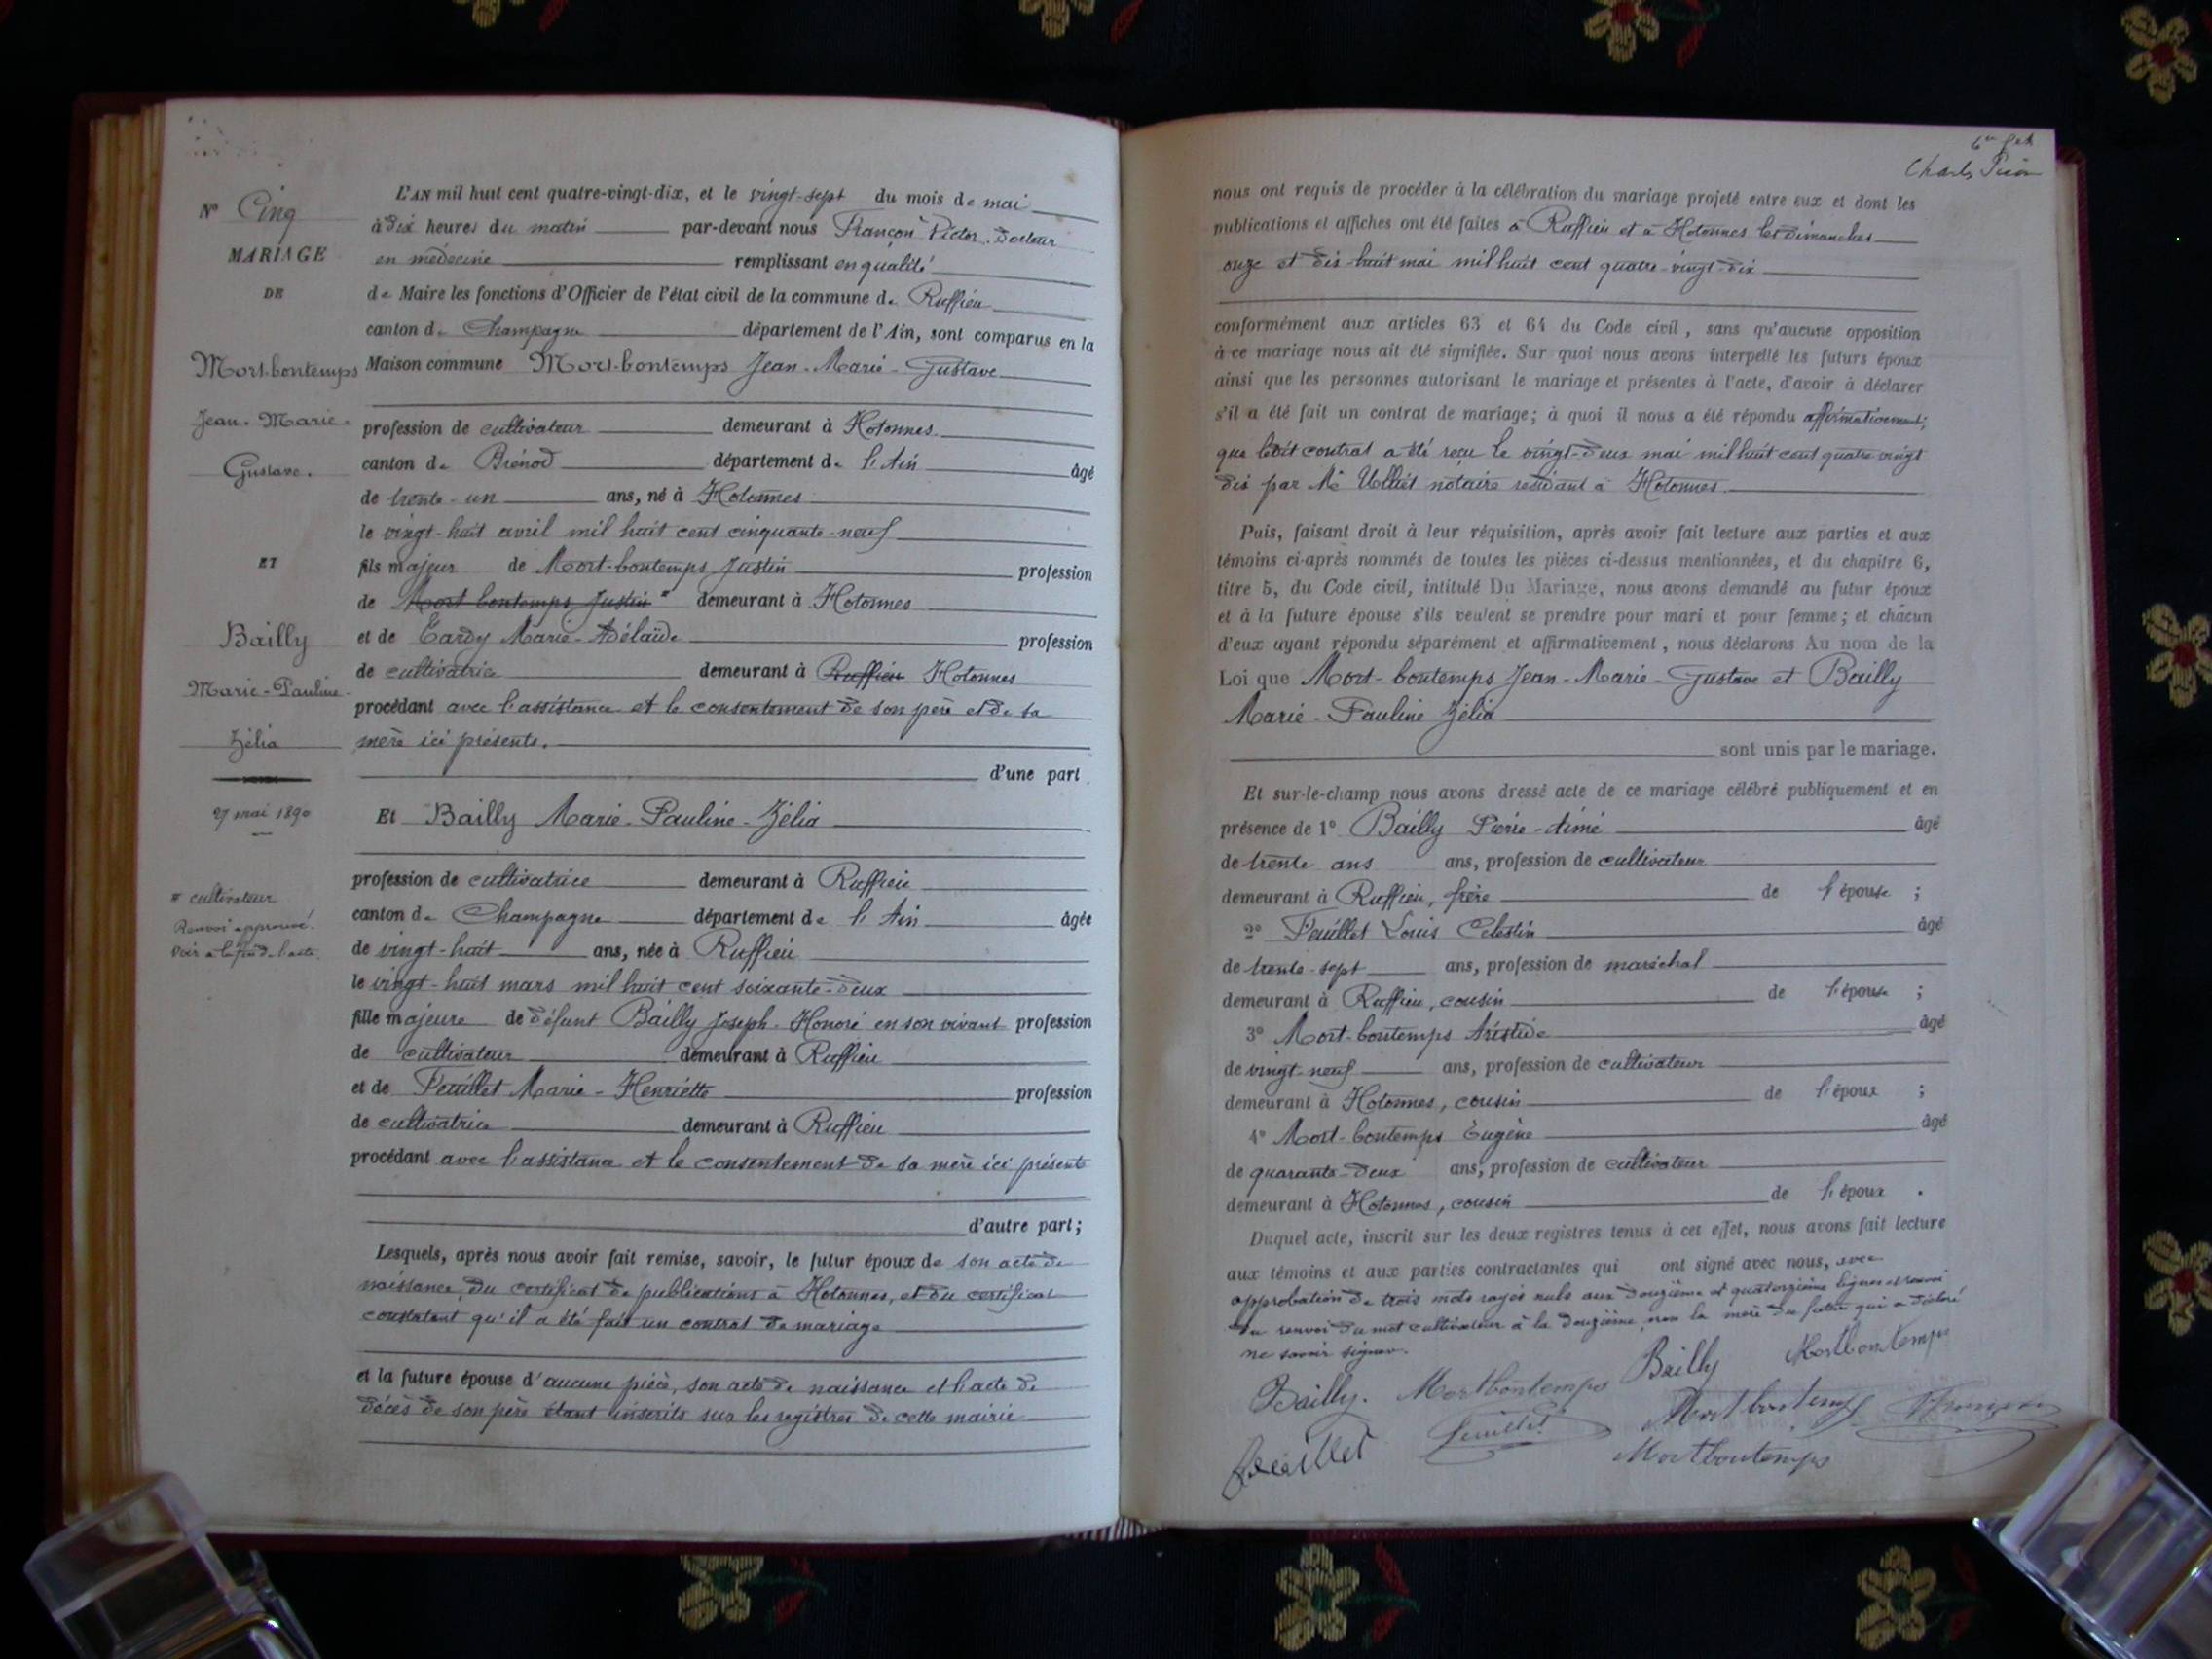 N° Cinq
MARIAGE
DE
Mort-bontemps
Jean-Marie-
Gustave.
ET
Bailly
Marie-Pauline-
Zélia
27 mai 1890
# cultivateur
Renvoi approuvé.
Voir à la fin de l'acte.
L'AN mil huit cent quatre-vingt-dix, et le vingt-sept du mois de mai
à dix heures du matin par-devant nous Françon Victor, docteur
en médecine remplissant en qualité
de Maire les fonctions d'Officier de l'état civil de la commune de Ruffieu
canton de Champagne département de l'Ain, sont comparus en la
Maison commune Mort-bontemps Jean-Marie-Gustave
profession de cultivateur demeurant à Hotonnes
canton de Brénod département de l'Ain âgé
de trente-un ans, né à Hotonnes
le vingt-huit avril mil huit cent cinquante-neuf
fils majeur de Mort-bontemps Justin profession
de Mort-bontemps Justin # demeurant à Hotonnes
et de Tardy Marie-Adélaïde profession
de cultivatrice demeurant à Ruffieu Hotonnes
procédant avec l'assistance et le consentement de son père et de sa
mère ici présents.
d'une part
Et Bailly Marie-Pauline-Zélia
profession de cultivatrice demeurant à Ruffieu
canton de Champagne département de l'Ain âgée
de vingt-huit ans, née à Ruffieu
le vingt-huit mars mil huit cent soixante-deux
fille majeure de défunt Bailly Joseph-Honoré en son vivant profession
de cultivateur demeurant à Ruffieu
et de Feuillet Marie-Henriette profession
de cultivatrice demeurant à Ruffieu
procédant avec l'assistance et le consentement de sa mère ici présente
d'autre part;
Lesquels, après nous avoir fait remise, savoir, le futur époux de son acte de
naissance, du certificat de publications à Hotonnes, et du certificat
constatant qu'il a été fait un contrat de mariage
et la future épouse d'aucune pièce, son acte de naissance et l'acte de
décès de son père étant inscrits sur les registres de cette mairie
Charles
nous ont requis de procéder à la célébration du mariage projeté entre eux et dont les
publications et affiches ont été faites à Ruffieu et à Hotonnes les dimanches
onze et dix-huit mai mil huit cent quatre-vingt-dix
conformément aux articles 63 et 64 du Code civil, sans qu'aucune opposition
à ce mariage nous ait été signifiée. Sur quoi nous avons interpellé les futurs époux
ainsi que les personnes autorisant le mariage et présentes à l'acte, d'avoir à déclarer
s'il a été fait un contrat de mariage; à quoi il nous a été répondu affirmativement;
que ledit contrat a été reçu le vingt-deux mai mil huit cent quatre vingt
dix par Me Ulliet notaire résidant à Hotonnes
Puis, faisant droit à leur réquisition, après avoir fait lecture aux parties et aux
témoins ci-après nommés de toutes les pièces ci-dessus mentionnées, et du chapitre 6,
titre 5, du Code civil, intitulé Du Mariage, nous avons demandé au futur époux
et à la future épouse s'ils veulent se prendre pour mari et pour femme; et chacun
d'eux ayant répondu séparément et affirmativement, nous déclarons Au nom de la
Loi que Mort-bontemps Jean-Marie-Gustave et Bailly
Marie-Pauline Zélia
sont unis par le mariage.
Et sur-le-champ nous avons dressé acte de ce mariage célébré publiquement et en
présence de 1° Bailly Pierre-Aimé âgé
de trente ans ans, profession de cultivateur
demeurant à Ruffieu, frère de l'épouse ;
2° Feuillet Louis Célestin âgé
de trente-sept ans, profession de maréchal
demeurant à Ruffieu, cousin de l'épouse ;
3° Mort-bontemps Aristide âgé
de vingt neuf ans, profession de cultivateur
demeurant à Hotonnes, cousin de l'époux ;
4° Mort-bontemps Eugène âgé
de quarante-deux ans, profession de cultivateur
demeurant à Hotonnes, cousin de l'époux .
Duquel acte, inscrit sur les deux registres tenus à cet effet, nous avons fait lecture
aux témoins et aux parties contractantes qui ont signé avec nous, avec
approbation de trois mots rayés nuls aux douzième et quatorzième lignes
du renvoi du mot cultivateur à la douzième, non la mère du futur qui a déclaré
ne savoir signer.
Bailly. Mortbontemps Bailly Mortbontemps
Feuillet Feuillet Mortbontemps Françon
Mortbontemps